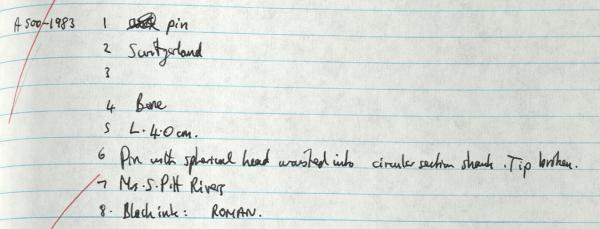 A500-1983 1 pin
2 Switzerland
3
4 Bone
5 L. 4.0 cm.
6 Pin with spherical head waisted into circular section shank. Tip broken.
7 Mrs. S. Pitt Rivers
8. Black ink: ROMAN.